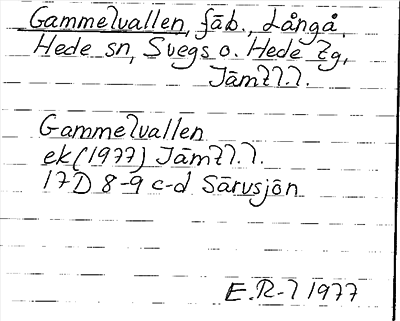 Gammelvallen, fäb., Långå,
Hede sn, Svegs o. Hede tg,
Jämtl.l.
Gammelvallen
ek (1977) Jämtl.l.
17D 8-9 c-d Särvsjön
E.R-l 1977